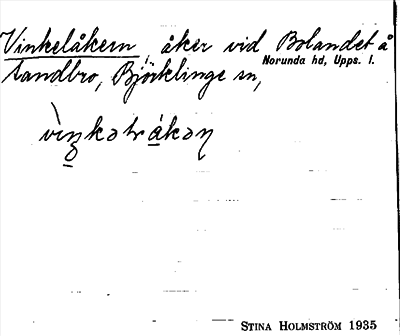 Vinkelåkern, åker vid Bolandet å
Norunda hd, Upps. l.
tandbro, Björklinge sn,
vìŋkətråkəɳ
STINA HOLMSTRÖM 1935